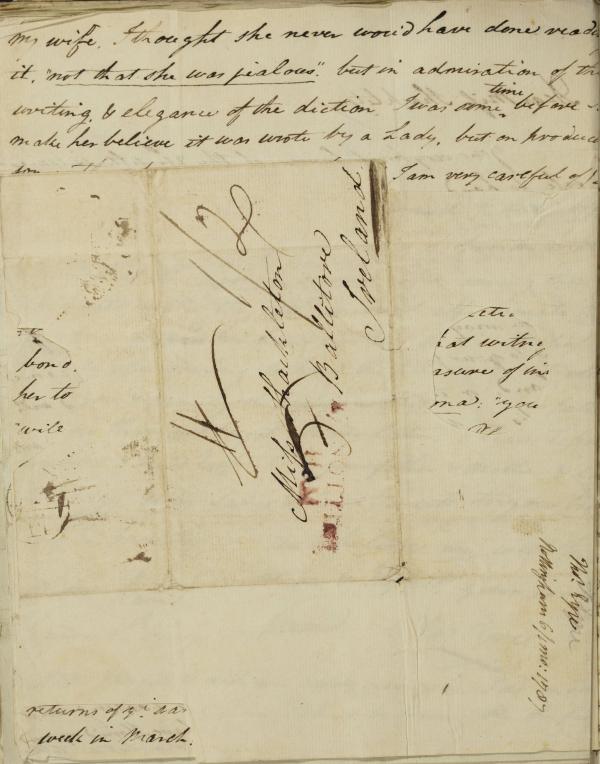 my wife. I thought she never would have done readi
it, "not that she was jealous." but in admiration of the
writing, & elegance of the diction. I was some time before I
make her believe it was wrote by a Lady, but on produci
I am very careful of
Miss Shackleton
Ballitore
Ireland
bond.
her to
wile
at witne
asure of in
ma: "you
Thos. Eyre
Nottingham 6/mo: 1787
returns of yr. da
week in March.